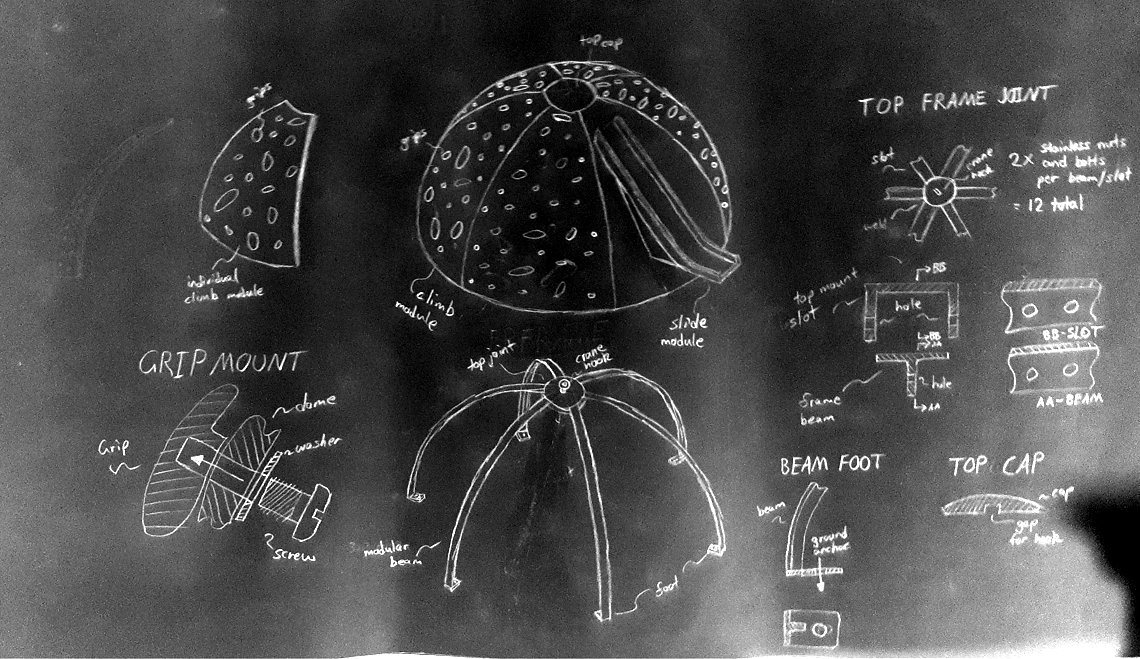 top cap
grips
grips
individual
climb module
climb
module
slide
module
TOP FRAME JOINT
slot
crane
hook
weld
2x stainless nuts
and bolts
per beam/slot
= 12 total
top mount
slot
hole
BB
BB
BB-SLOT
AA
frame
beam
hole
AA
AA-BEAM
GRIP MOUNT
Grip
dome
washer
screw
top joint
crane
hook
modular
beam
foot
BEAM FOOT
beam
ground
anchor
TOP CAP
cap
gap
for hook